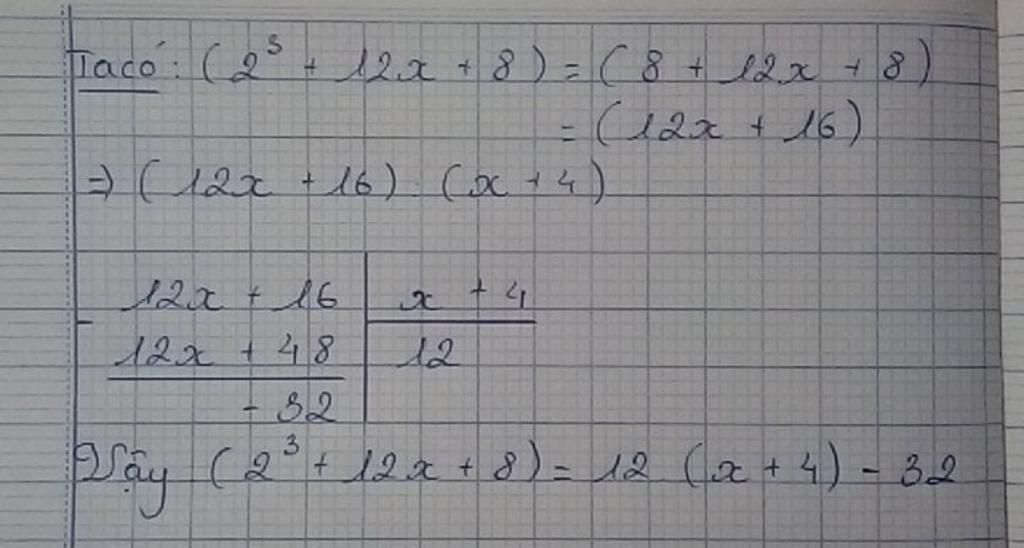 Ta có: (2³ + 12x + 8) = (8 + 12x + 8)
= (12x + 16)
=> (12x + 16) : (x + 4)
12x + 16 | x + 4
-
12x + 48 | 12
- 32
Vậy (2³ + 12x + 8) = 12 (x + 4) - 32